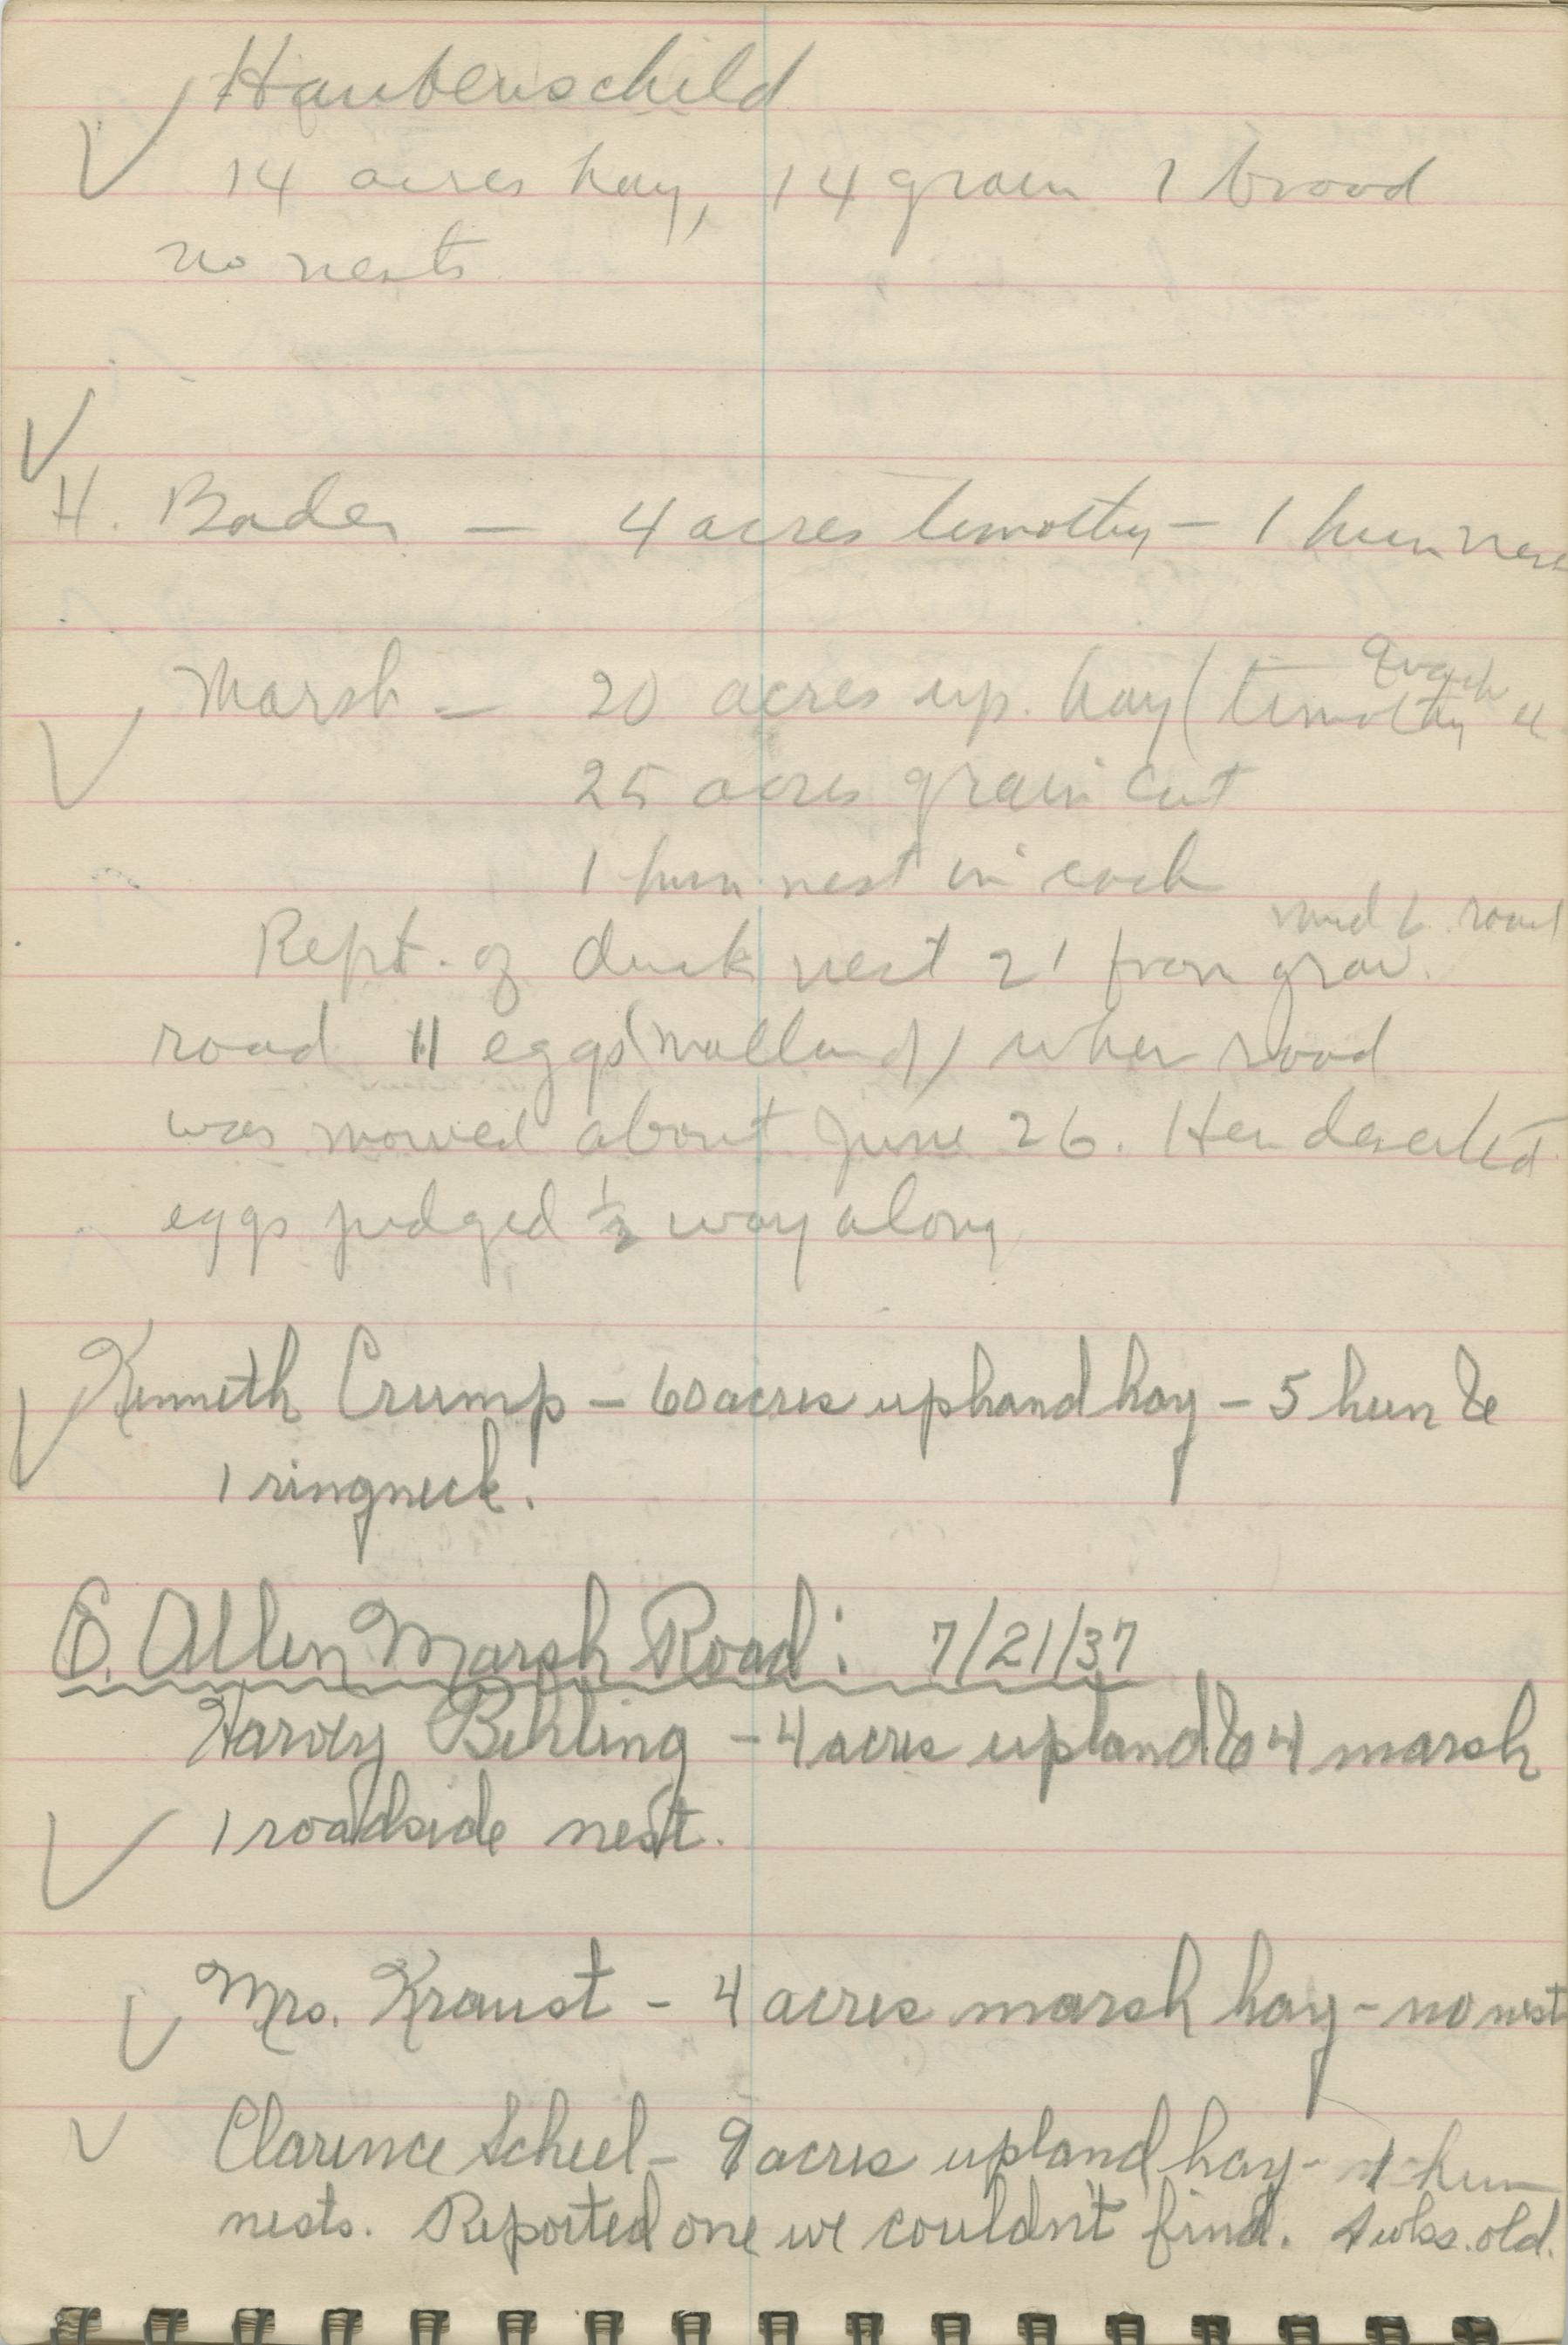 ✓ Haubenschild
14 acres hay, 14 grain 1 brood
no nests
✓
H. Bader — 4 acres timothy — 1 hun nest
quack
✓ Marsh — 20 acres up. hay (timothy &
25 acres grain cut
1 hun nest in each
road
Rept. of duck nest 2' from grav.
road 11 eggs (mallard) when road
was mowed about June 26. Hen deserted
eggs judged ½ way along
✓ Kenneth Crump — 60 acres uphand hay — 5 hun &
1 ringneck.
E. Allen Marsh Road: 7/21/37
Harvey Behling — 4 acres upland & 4 marsh
✓ 1 roadside nest.
✓ Mrs. Kraust — 4 acres marsh hay — no nest
✓ Clarence Scheel — 9 acres upland hay - 1 hun
nests. Reported one we couldn't find. wks. old.